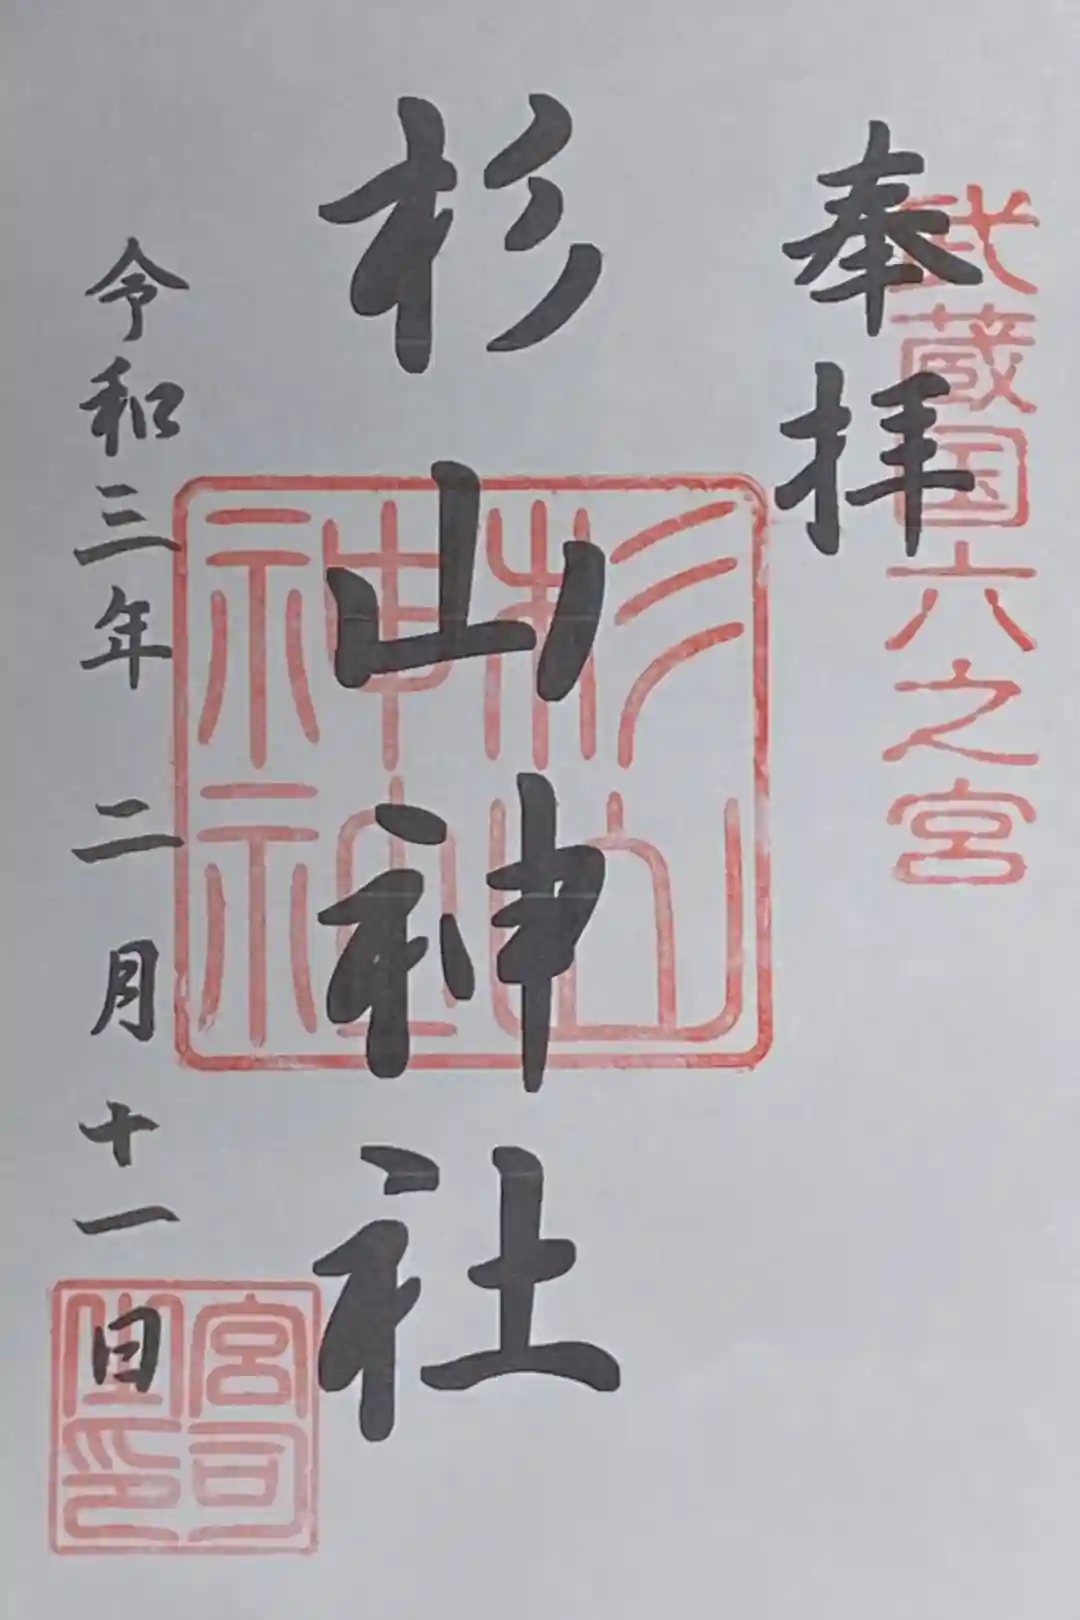 奉拝
武蔵国六之宮
杉山神社
杉山
神社
令和三年 二月十一日
宮司
之印